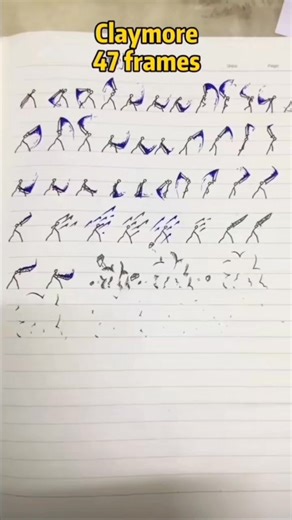 Claymore
47 frames